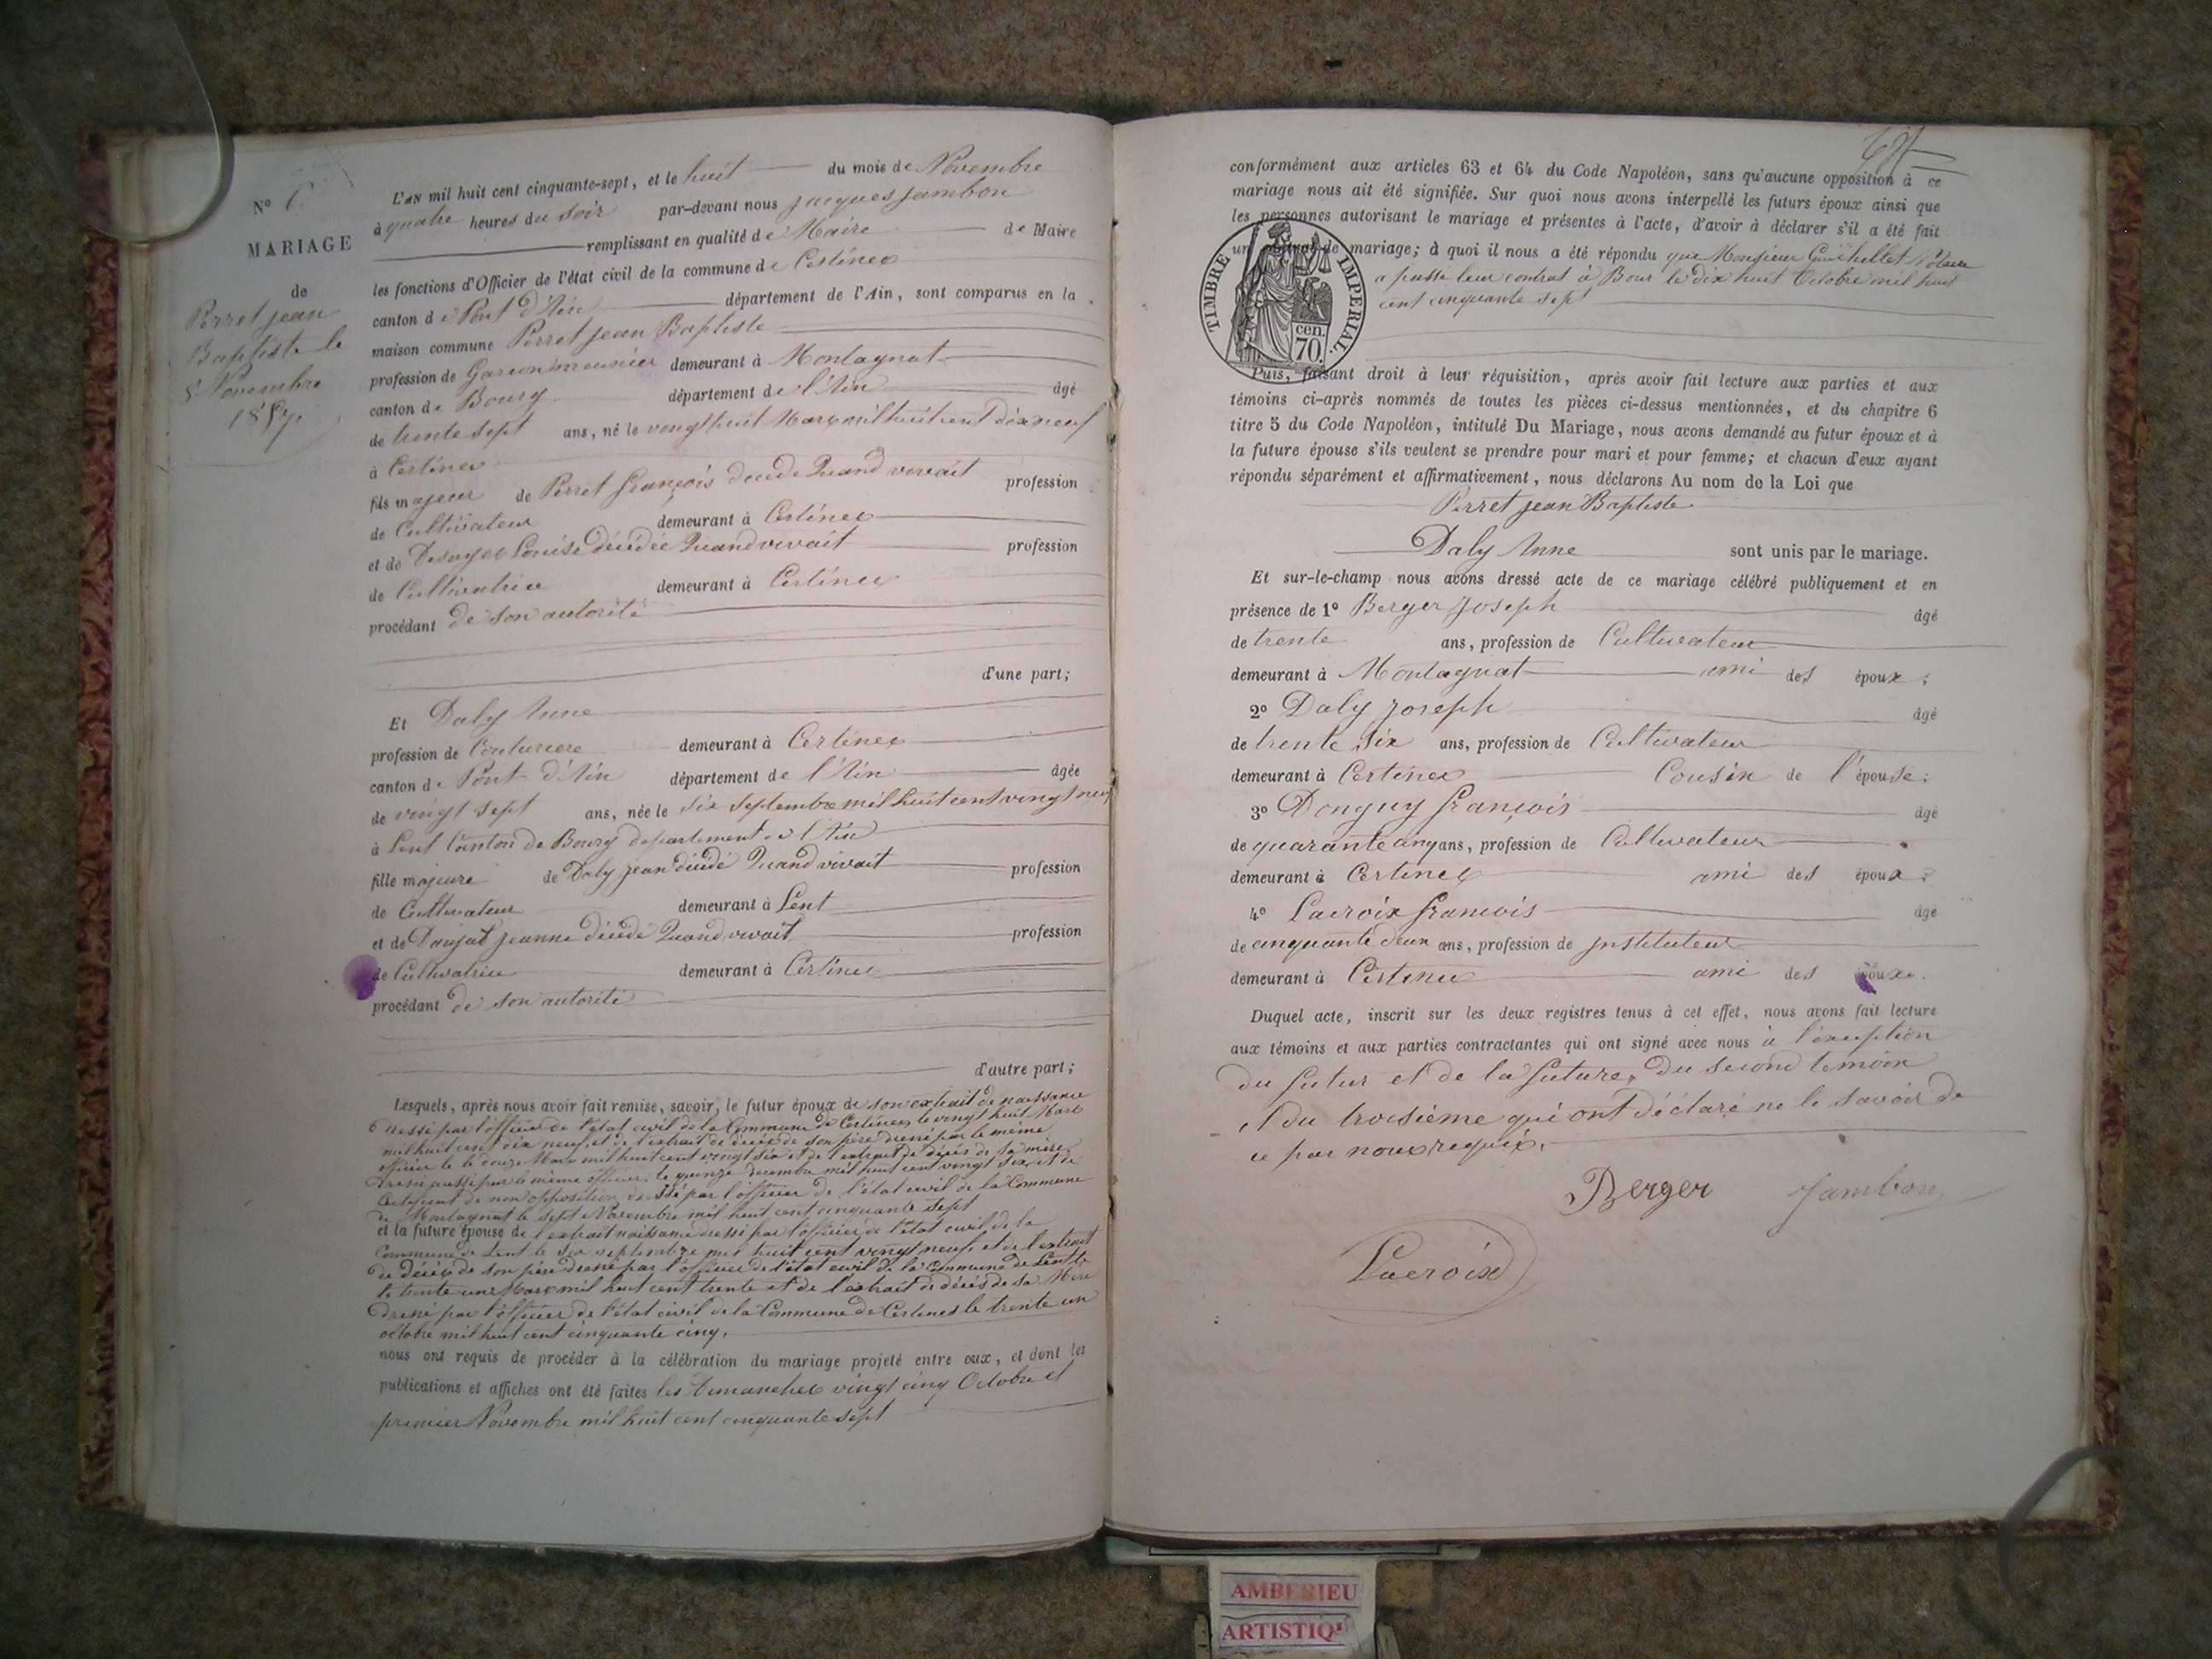 N° 6
MARIAGE
de
Perret jean
Baptiste le
8 Novembre
1857.
L'AN mil huit cent cinquante-sept, et le huit du mois de Novembre
à quatre heures du soir par-devant nous jacques jambon
remplissant en qualité de Maire de Maire
les fonctions d'Officier de l'état civil de la commune de Certines
canton de Pont d'Ain département de l'Ain, sont comparus en la
maison commune Perret jean Baptiste
profession de Garçon meunier demeurant à Montagnat
canton de Bourg département de l'Ain âgé
de trente sept ans, né le vingt huit Mars mil huit cent dix neuf
à Certines
fils majeur de Perret françois décédé Quand vivait profession
de Cultivateur demeurant à Certines
et de Louise décédée Quand vivait profession
de Cultivatrice demeurant à Certines
procédant de son autorité
d'une part;
Et Daly Anne
profession de Couturiere demeurant à Certines
canton de Pont d'Ain département de l'Ain âgée
de vingt sept ans, née le six septembre mil huit cent vingt neuf
à Lent Canton de Bourg département de l'Ain
fille majeure de Daly jean décédé Quand vivait profession
de Cultivateur demeurant à Lent
et de jeanne décédé Quand vivait profession
de Cultivatrice demeurant à Certines
procédant de son autorité
d'autre part;
Lesquels, après nous avoir fait remise, savoir, le futur époux de son extrait de naissance
dressé par l'officier de l'état civil de la Commune de Certines le vingt huit Mars
mil huit cent dix neuf, et de l'extrait de décès de son père dressé par le même
officier le douze Mars mil huit cent vingt six et de l'extrait de décès de sa mère
dressé aussi par le même officier, le quinze decembre mil huit cent vingt six, et de
Certificat de non opposition dressé par l'officier de l'état civil de la Commune
de Montagnat le sept Novembre mil huit cent cinquante sept
et la future épouse de l'extrait naissance dressé par l'officier de l'état civil de la
Commune de Lent le six septembre mil huit cent vingt neuf, et de l'extrait
de décès de son père dressé par l'officier de l'état civil de la Commune de Lent
le trente un Mars mil huit cent trente et de l'extrait de décès de sa Mère
dressé par l'officier de l'état civil de la Commune de Certines le trente un
octobre mil huit cent cinquante cinq.
nous ont requis de procéder à la célébration du mariage projeté entre eux, et dont les
publications et affiches ont été faites les Dimanches vingt cinq Octobre et
premier Novembre mil huit cent cinquante sept
conformément aux articles 63 et 64 du Code Napoléon, sans qu'aucune opposition à ce
mariage nous ait été signifiée. Sur quoi nous avons interpellé les futurs époux ainsi que
les personnes autorisant le mariage et présentes à l'acte, d'avoir à déclarer s'il a été fait
un contrat de mariage; à quoi il nous a été répondu que Monsieur Guichellet Notaire
a passé leur contrat à Bour le dix huit Octobre mil huit
cent cinquante sept
TIMBRE IMPERIAL.
cen.
70.
Puis, faisant droit à leur réquisition, après avoir fait lecture aux parties et aux
témoins ci-après nommés de toutes les pièces ci-dessus mentionnées, et du chapitre 6
titre 5 du Code Napoléon, intitulé Du Mariage, nous avons demandé au futur époux et à
la future épouse s'ils veulent se prendre pour mari et pour femme; et chacun d'eux ayant
répondu séparément et affirmativement, nous déclarons Au nom de la Loi que
Perret jean Baptiste
Daly Anne sont unis par le mariage.
Et sur-le-champ nous avons dressé acte de ce mariage célébré publiquement et en
présence de 1° Berger joseph âgé
de trente ans, profession de Cultivateur
demeurant à Montagnat ami des époux;
2° Daly joseph âgé
de trente six ans, profession de Cultivateur
demeurant à Certines Cousin de l'épouse;
3° Donguy françois âgé
de quarante cinq ans, profession de Cultivateur
demeurant à Certines ami des époux;
4° Lacroix francois âgé
de cinquante deux ans, profession de jnstituteur
demeurant à Certines ami des époux.
Duquel acte, inscrit sur les deux registres tenus à cet effet, nous avons fait lecture
aux témoins et aux parties contractantes qui ont signé avec nous à l'éxception
du futur et de la future, du second témoin
et du troisième qui ont déclaré ne le savoir de
ce par nous requis.
Berger jambon
Lacroix
AMBERIEU
ARTISTIQ